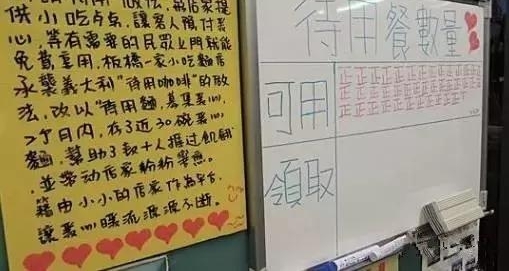 供小吃点点，讓客人預付買
心，等有需要的民眾上門就能
免費享用，板橋一家小吃麵店
承襲義大利"待用咖啡"的做
法，改以"待用麵，募集善心，
2个月內，存了近30碗善心
麵，幫助了數十人捱过飢餓
，並帶动店家紛紛響應。
藉由小小的店家作為平台，
讓善心暖流源源不斷。
待用餐數量
可用
正正正正正正正正正正正正正
正正正正正正正正正正正正正
正正正正正正正正正正正
領取